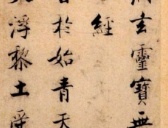 玄靈寶無
經
昔於始青天
浮黎土受